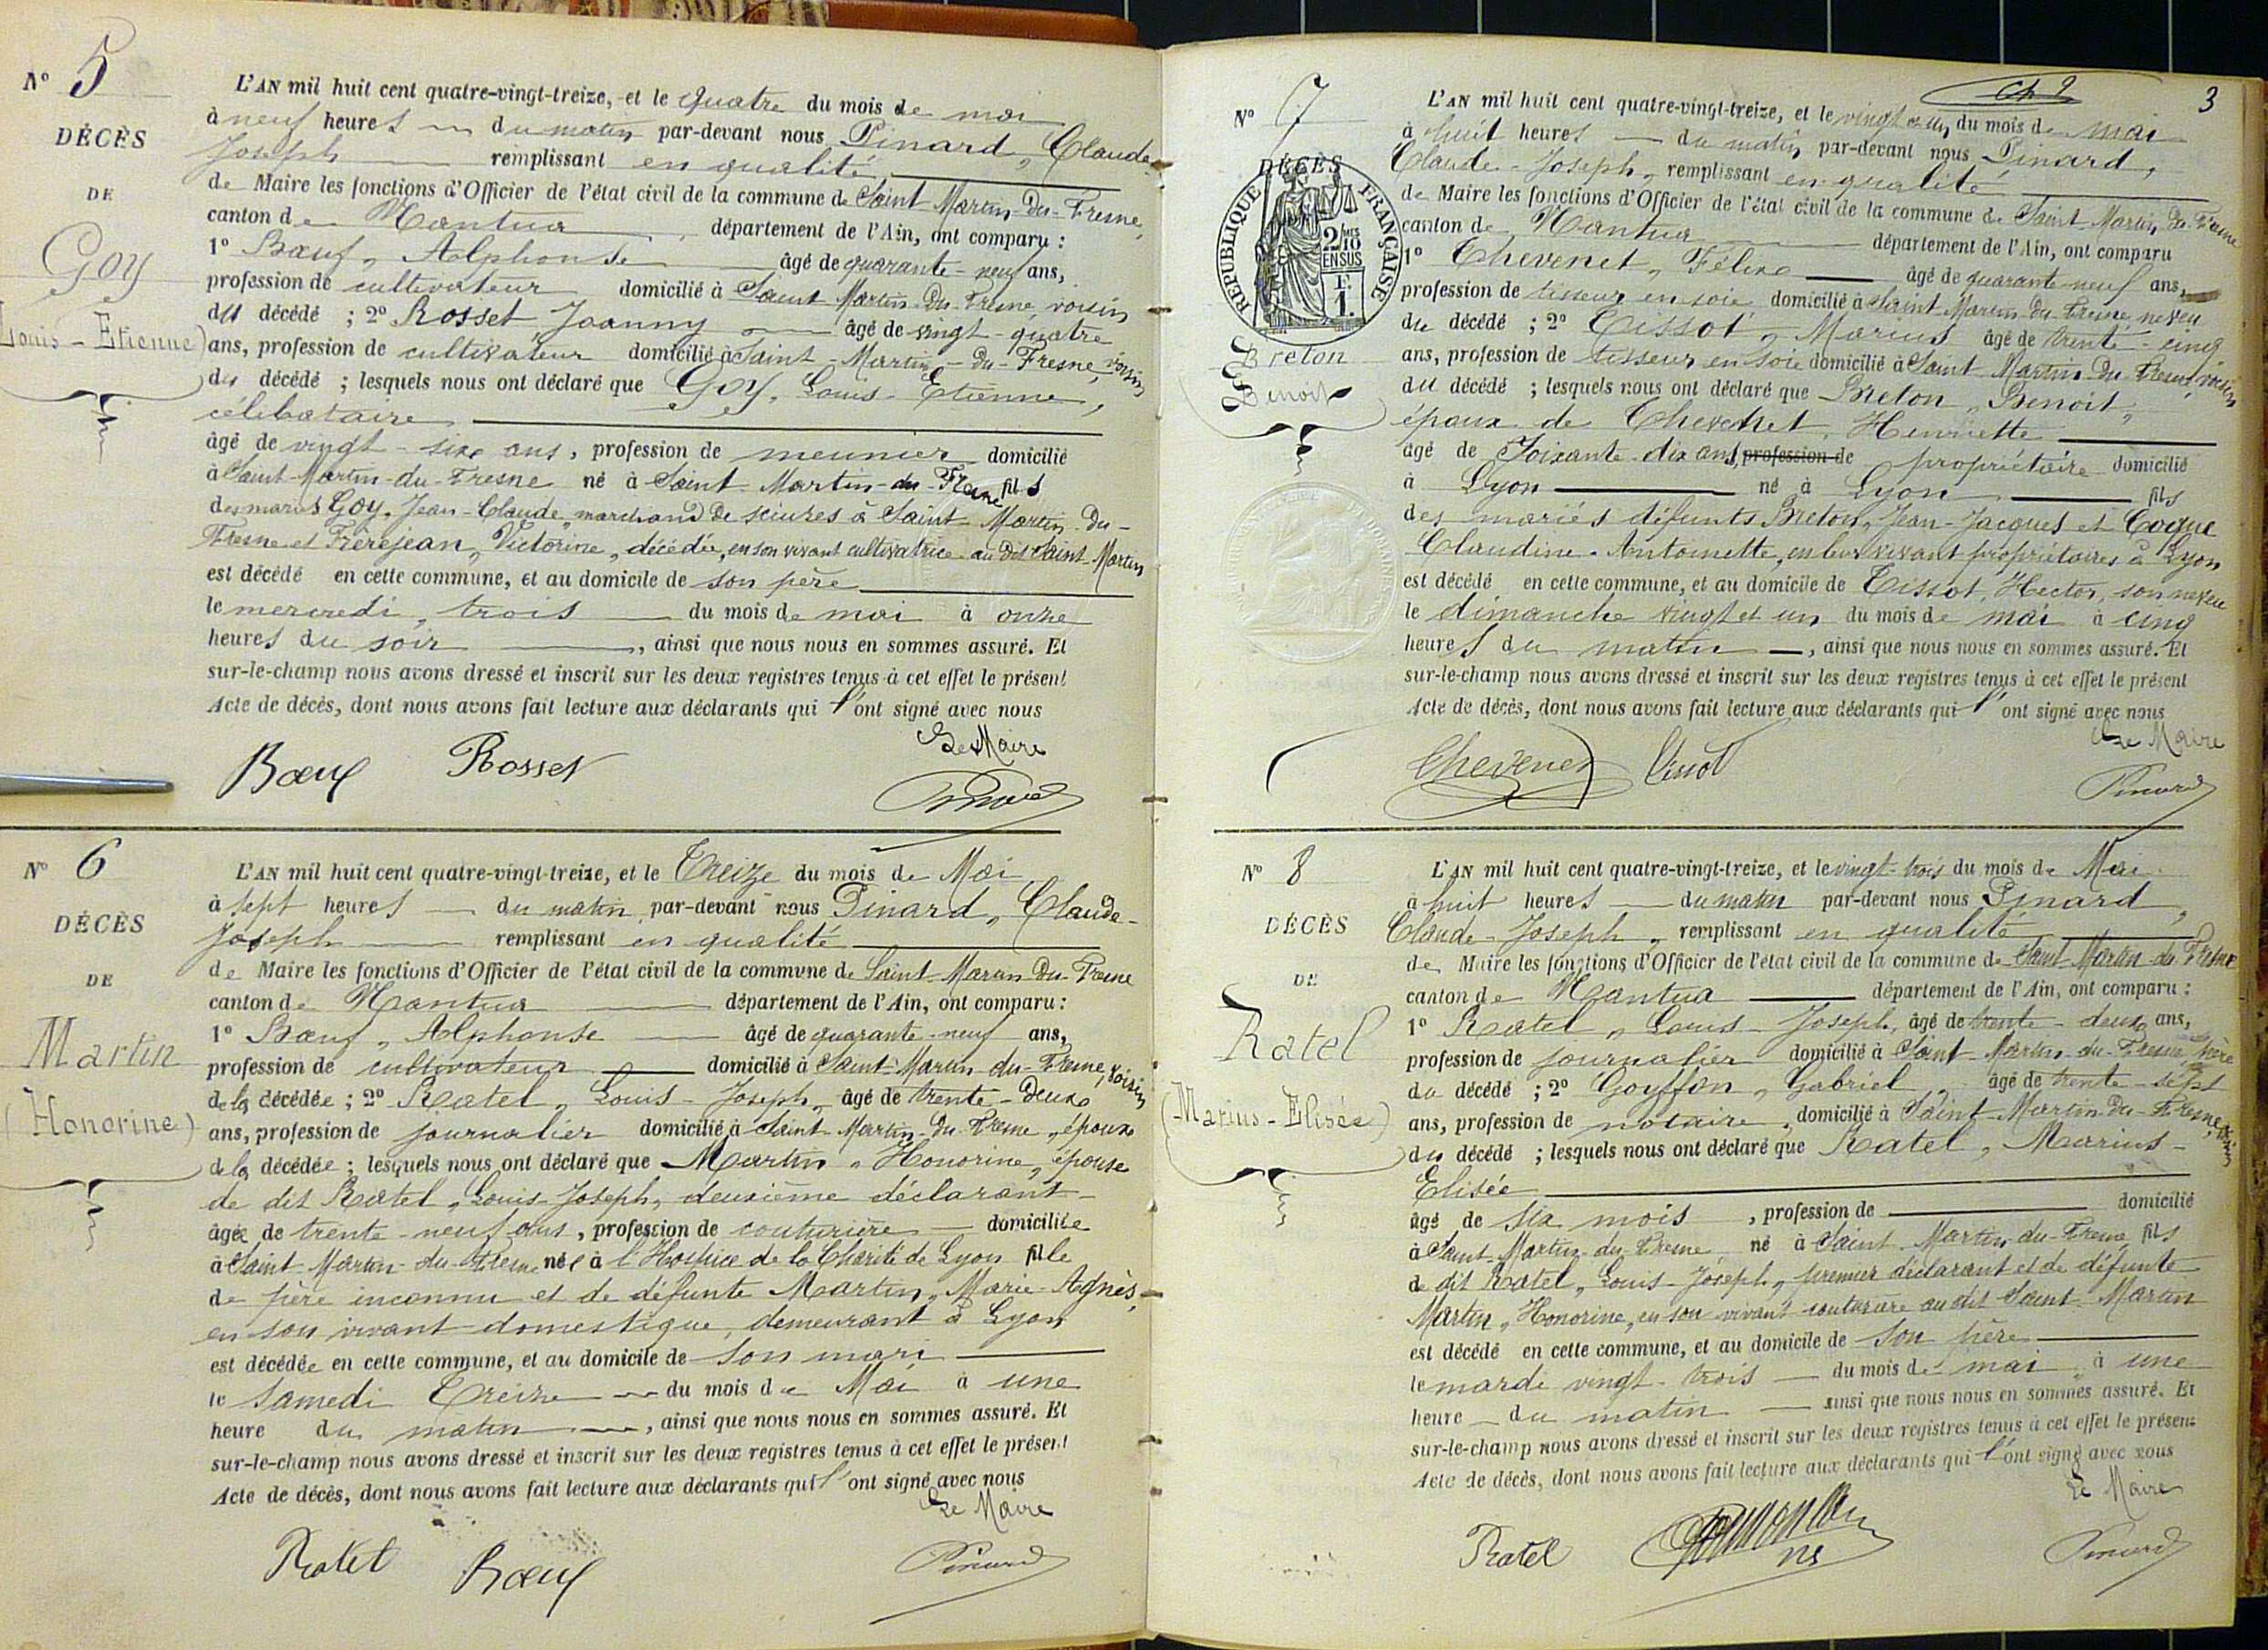 N° 5
DÉCÈS
DE
Goy
Louis-Etienne)
L'AN mil huit cent quatre-vingt-treize, et le quatre du mois de mai
à neuf heures du matin par-devant nous Pinard, Claude
Joseph remplissant en qualité
de Maire les fonctions d'Officier de l'état civil de la commune de Saint-Martin-du-Fresne,
canton de Nantua, département de l'Ain, ont comparu :
1° Bœuf, Alphonse âgé de quarante-neuf ans,
profession de cultivateur domicilié à Saint Martin-du-Fresne, voisin
du décédé ; 2° Rosset Joanny âgé de vingt-quatre
ans, profession de cultivateur domicilié à Saint-Martin-du-Fresne, voisin
du décédé ; lesquels nous ont déclaré que Goy, Louis-Etienne,
célibataire
âgé de vingt-six ans, profession de meunier domicilié
à Saint-Martin-du-Fresne né à Saint-Martin-du-Fresne fils
des mariés Goy, Jean-Claude, marchand de sciures à Saint Martin-du-
Fresne et Frèrejean, Victorine, décédée, en son vivant cultivatrice au dit Saint-Martin
est décédé en cette commune, et au domicile de son père
le mercredi, trois du mois de mai à onze
heures du soir, ainsi que nous nous en sommes assuré. Et
sur-le-champ nous avons dressé et inscrit sur les deux registres tenus à cet effet le présent
Acte de décès, dont nous avons fait lecture aux déclarants qui l'ont signé avec nous
Le Maire
Bœuf Rosset Pinard
N° 6
DÉCÈS
DE
Martin
(Honorine)
L'AN mil huit cent quatre-vingt-treize, et le Treize du mois de Mai
à sept heures du matin par-devant nous Pinard, Claude-
Joseph remplissant en qualité
de Maire les fonctions d'Officier de l'état civil de la commune de Saint-Martin-du-Fresne
canton de Nantua département de l'Ain, ont comparu :
1° Bœuf, Alphonse âgé de quarante-neuf ans,
profession de cultivateur domicilié à Saint-Martin-du-Fresne, voisin
de la décédée ; 2° Ratel, Louis-Joseph, âgé de trente-deux
ans, profession de journalier domicilié à Saint-Martin-du-Fresne, époux
de la décédée ; lesquels nous ont déclaré que Martin, Honorine, épouse
de dit Ratel, Louis-Joseph, deuxième déclarant
âgée de trente-neuf ans, profession de couturière domiciliée
à Saint-Martin-du-Fresne née à l'Hospice de la Charité de Lyon fille
de père inconnu et de défunte Martin, Marie-Agnès,
en son vivant domestique, demeurant à Lyon
est décédée en cette commune, et au domicile de son mari
le samedi Treize du mois de Mai à une
heure du matin, ainsi que nous nous en sommes assuré. Et
sur-le-champ nous avons dressé et inscrit sur les deux registres tenus à cet effet le présent
Acte de décès, dont nous avons fait lecture aux déclarants qui l'ont signé avec nous
Le Maire
Ratel Bœuf Pinard
3
N° 7
DÉCÈS
RÉPUBLIQUE FRANÇAISE
2/10 EN SUS
F. 1.
Breton
Benoit
L'AN mil huit cent quatre-vingt-treize, et le vingt et un du mois de mai
à huit heures du matin par-devant nous Pinard,
Claude-Joseph, remplissant en qualité
de Maire les fonctions d'Officier de l'état civil de la commune de Saint-Martin-du-Fresne
canton de Nantua département de l'Ain, ont comparu
1° Chevenet, Félix âgé de quarante-neuf ans,
profession de tisseur en soie domicilié à Saint-Martin-du-Fresne neveu
du décédé ; 2° Tissot, Marius âgé de trente-cinq
ans, profession de tisseur en soie domicilié à Saint-Martin-du-Fresne, voisin
du décédé ; lesquels nous ont déclaré que Breton, Benoit,
époux de Chevenet, Henriette
âgé de soixante-dix ans, profession de propriétaire domicilié
à Lyon né à Lyon fils
des mariés défunts Breton, Jean-Jacques et Coque
Claudine-Antoinette, en leur vivant propriétaires à Lyon
est décédé en cette commune, et au domicile de Tissot, Hector, son neveu
le dimanche vingt et un du mois de mai à cinq
heures du matin, ainsi que nous nous en sommes assuré. Et
sur-le-champ nous avons dressé et inscrit sur les deux registres tenus à cet effet le présent
Acte de décès, dont nous avons fait lecture aux déclarants qui l'ont signé avec nous
Le Maire
Chevenet Tissot Pinard
N° 8
DÉCÈS
DE
Ratel
(Marius-Elisée)
L'AN mil huit cent quatre-vingt-treize, et le vingt-trois du mois de Mai
à huit heures du matin par-devant nous Pinard,
Claude-Joseph, remplissant en qualité
de Maire les fonctions d'Officier de l'état civil de la commune de Saint-Martin-du-Fresne
canton de Nantua département de l'Ain, ont comparu :
1° Ratel, Louis-Joseph, âgé de trente-deux ans,
profession de journalier domicilié à Saint-Martin-du-Fresne père
du décédé ; 2° Gouffon, Gabriel, âgé de trente-sept
ans, profession de notaire, domicilié à Saint-Martin-du-Fresne, voisin
du décédé ; lesquels nous ont déclaré que Ratel, Marius-
Elisée
âgé de six mois, profession de domicilié
à Saint-Martin-du-Fresne né à Saint-Martin-du-Fresne fils
de dit Ratel, Louis-Joseph, premier déclarant et de défunte
Martin, Honorine, en son vivant couturière au dit Saint-Martin
est décédé en cette commune, et au domicile de son père
le mardi vingt-trois du mois de mai, à une
heure du matin ainsi que nous nous en sommes assuré. Et
sur-le-champ nous avons dressé et inscrit sur les deux registres tenus à cet effet le présent
Acte de décès, dont nous avons fait lecture aux déclarants qui l'ont signé avec nous
Le Maire
Ratel Pinard